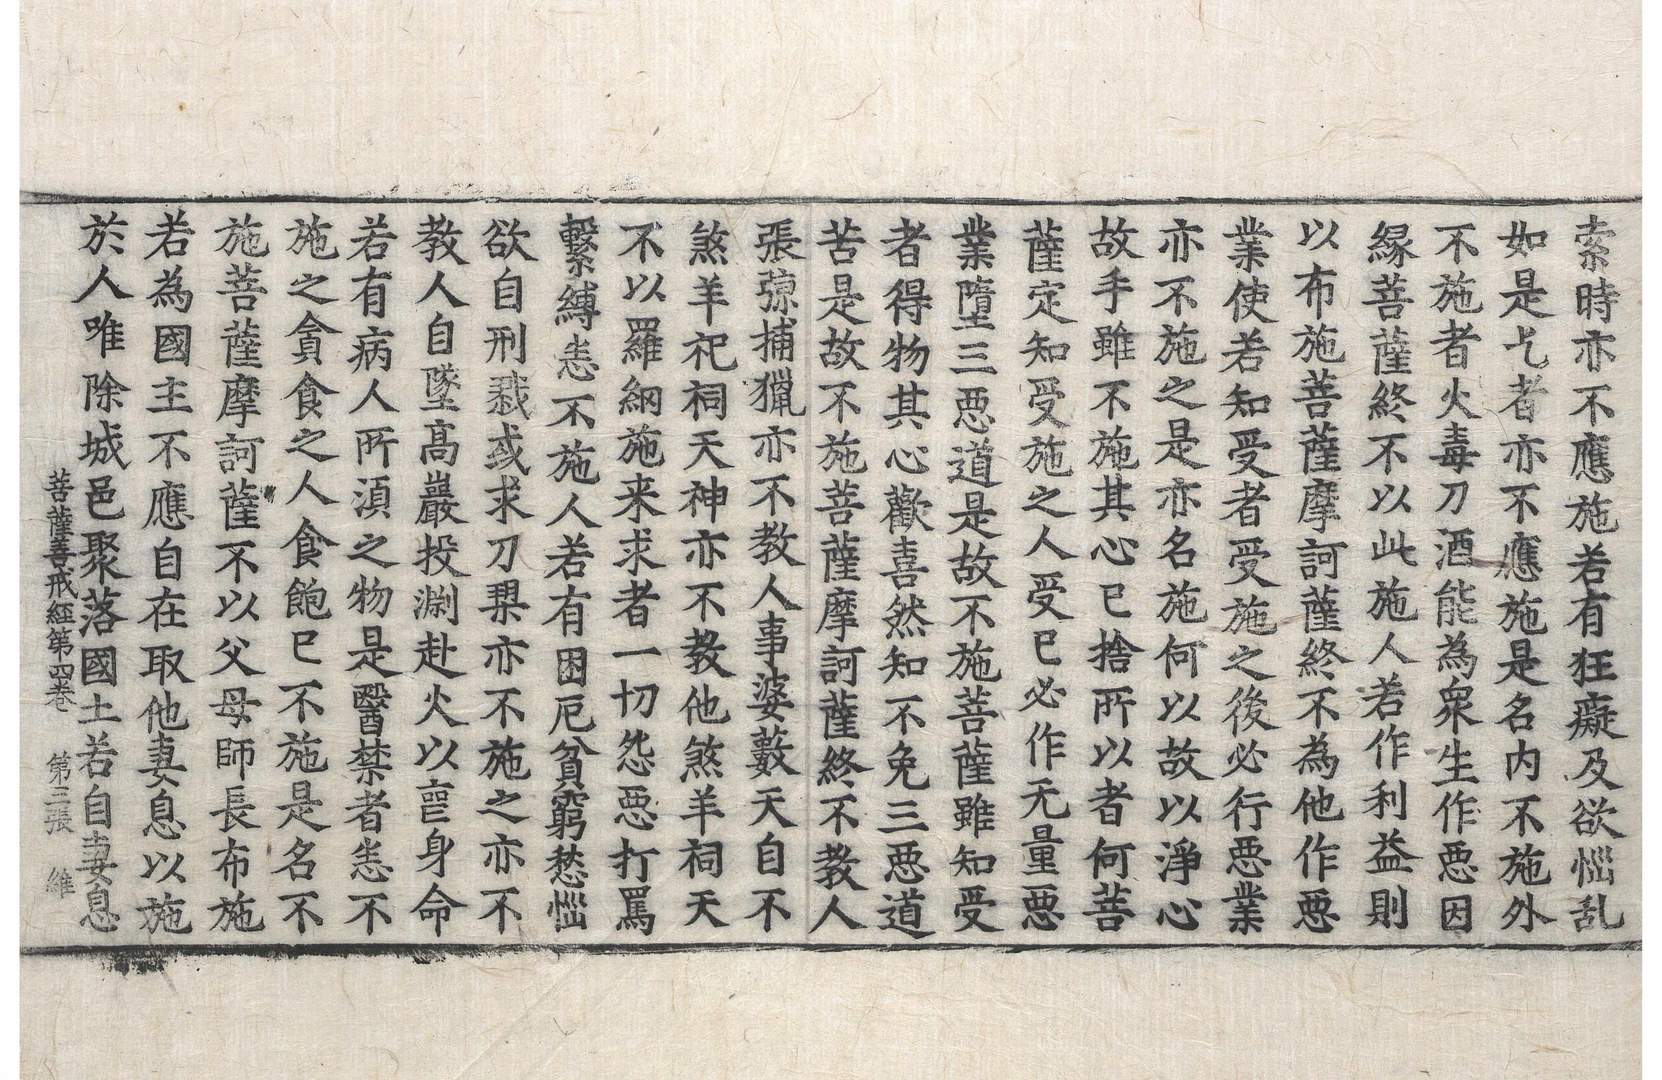 索時亦不應施若有狂癡及欲惱乱
如是乞者亦不應施是名内不施外
不施者火毒刀酒能為衆生作惡因
緣菩薩終不以此施人若作利益則
以布施菩薩摩訶薩終不為他作惡
業使若知受者受施之後必行惡業
亦不施之是亦名施何以故以淨心
故手雖不施其心已捨所以者何菩
薩定知受施之人受已必作无量惡
業墮三惡道是故不施菩薩雖知受
者得物其心歡喜然知不免三惡道
苦是故不施菩薩摩訶薩終不教人
張弶捕獵亦不教人事婆藪天自不
煞羊祀祠天神亦不教他煞羊祠天
不以羅網施来求者一切怨惡打罵
繫縛恚不施人若有困厄貧窮愁惱
欲自刑戮或求刀𣓤亦不施之亦不
教人自墜高巖投淵赴火以亡身命
若有病人所湏之物是醫禁者恚不
施之貪食之人食飽已不施是名不
施菩薩摩訶薩不以父母師長布施
若為國主不應自在取他妻息以施
於人唯除城邑聚落國土若自妻息
菩薩善戒經第四卷 第三張 維